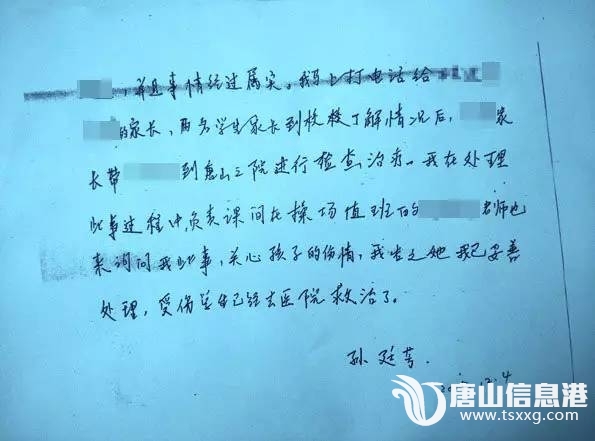 ，并且事情经过属实。我马上打电话给
的家长，两名学生家长到校了解情况后，家
长带到唐山三院进行检查治疗。我在处理
此事过程中，负责课间在操场值班的老师也
来询问我此事，关心孩子的伤情，我告之她我已妥善
处理，受伤学生已经去医院救治了。
孙廷
12.4
唐山信息港
www.tsxxg.com